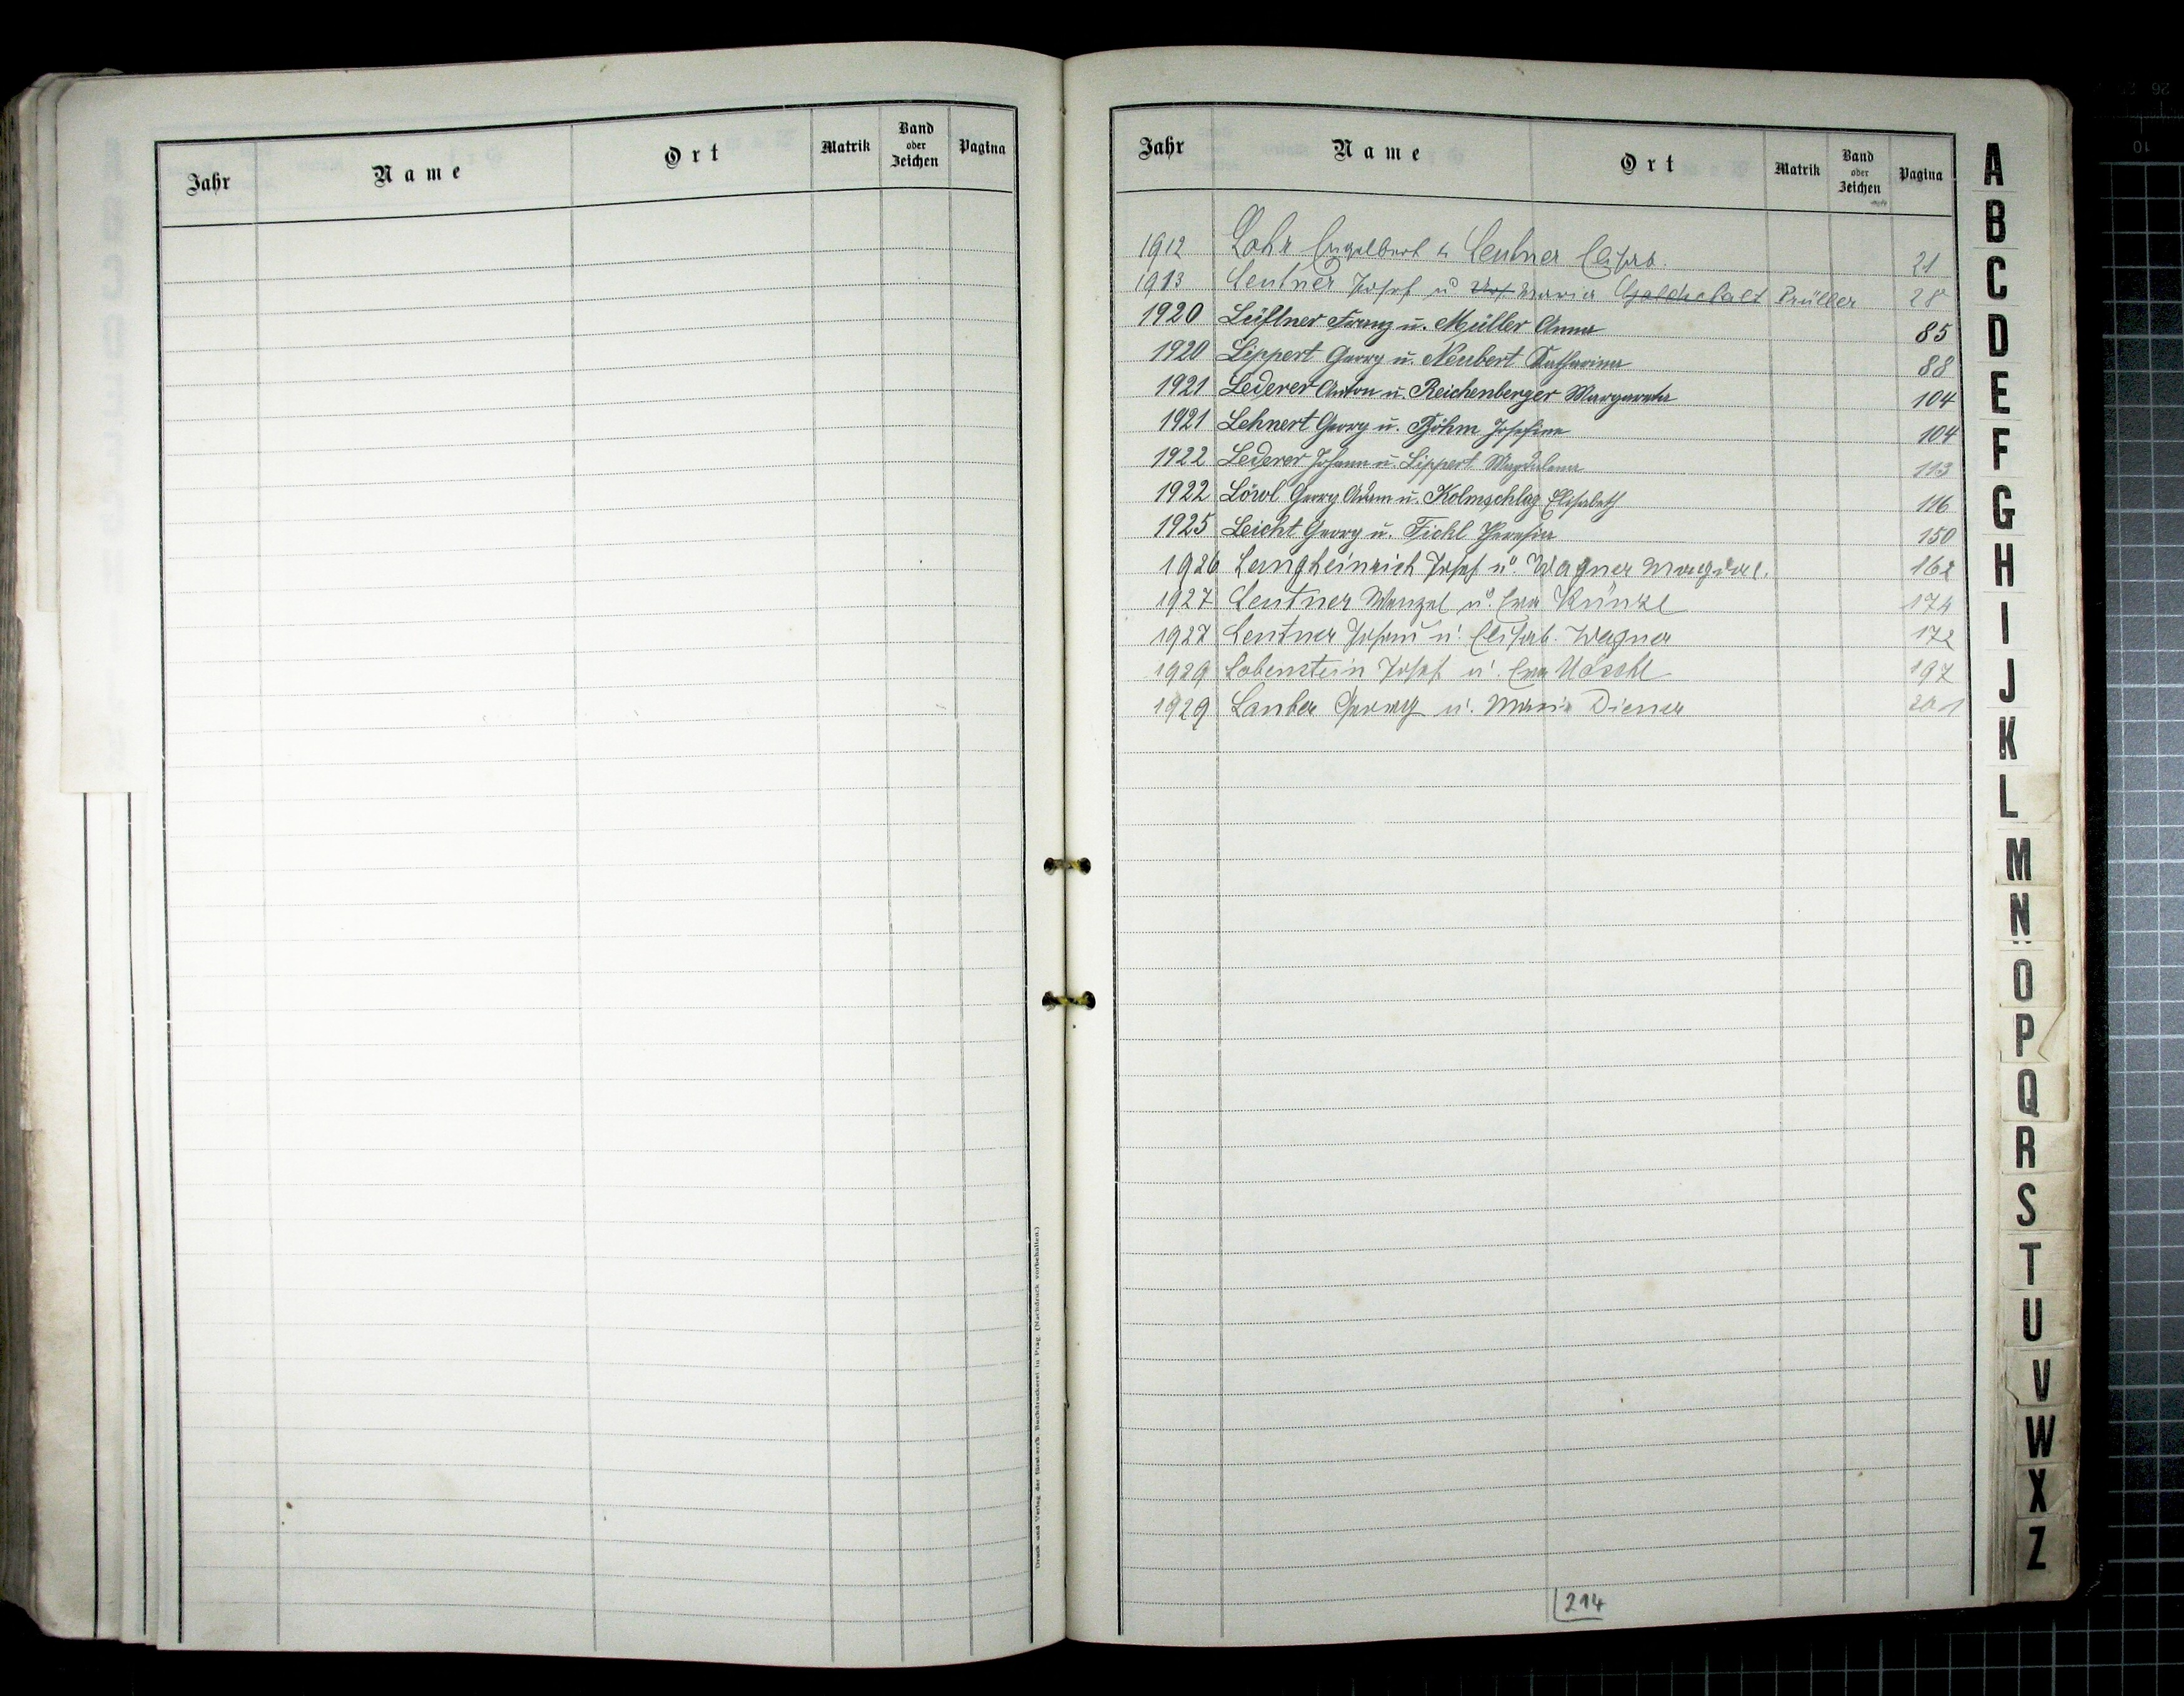 Jahr Name Ort Matrik Band oder Zeichen Pagina
Druck und Verlag der fürst-erzb. Buchdruckerei in Prag. (Nachdruck vorbehalten.)
Jahr Name Ort Matrik Band oder Zeichen Pagina
1912 Lohr Engelbert u Leutner Elisab. 21
1913 Leutner Josef u Maria Goldschalt Prüller 28
1920 Leißner Franz u. Müller Anna 85
1920 Lippert Georg u. Neubert Katharina 88
1921 Lederer Anton u. Reichenberger Margareta 104
1921 Lehnert Georg u. Böhm Josefine 104
1922 Lederer Johann u. Lippert Magdalena 113
1922 Löwl Georg Adam u. Kolmschlag Elisabeth 116
1925 Leicht Georg u. Fichl Theresia 150
1926 Langheinrich Josef u. Wagner Magdal. 162
1927 Leutner Wenzel u. Eva Künzl 174
1927 Leutner Johann u. Elisab. Wagner 172
1929 Lobenstein Josef u. Eva 197
1929 Lauber Georg u. Maria Diener 201
214
A
B
C
D
E
F
G
H
I
J
K
L
M
N
O
P
Q
R
S
T
U
V
W
X
Z